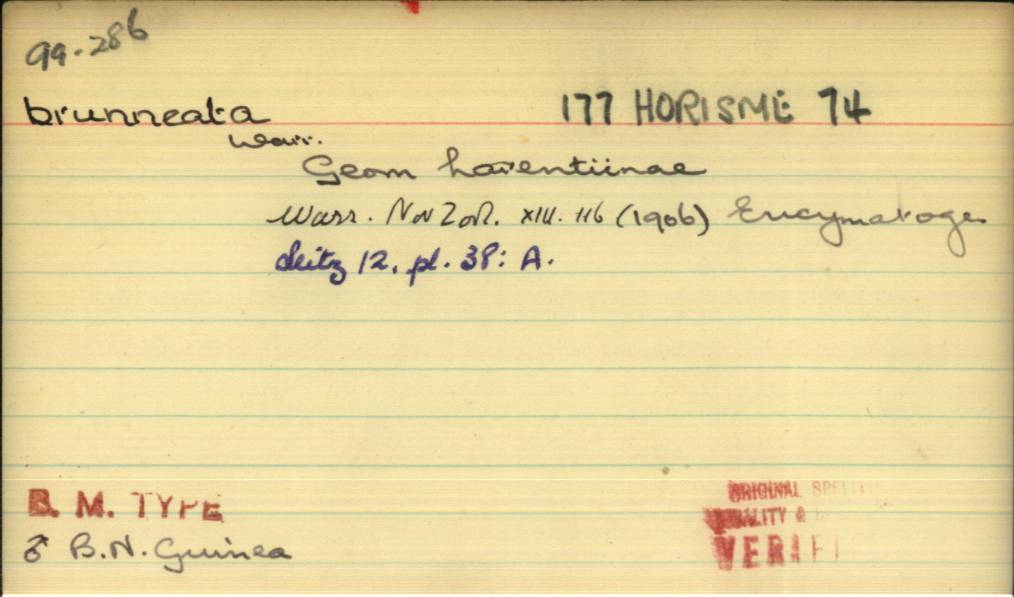 99-286
brunneata 177 HORISME 74
Warr.
Geom Larentiinae
Warr. Nov Zool. XIII. 116 (1906) Eucymatoge
Seitz 12. pl. 38: A.
B. M. TYPE
♂ B.N. Guinea
ORIGINAL
VERIFI